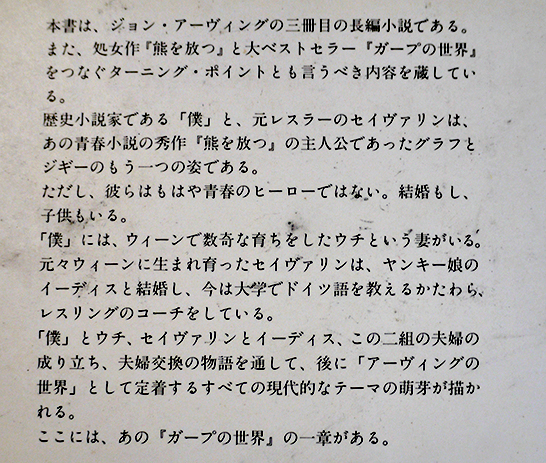 本書は、ジョン・アーヴィングの三冊目の長編小説である。
また、処女作『熊を放つ』と大ベストセラー『ガープの世界』
をつなぐターニング・ポイントとも言うべき内容を蔵してい
る。
歴史小説家である「僕」と、元レスラーのセイヴァリンは、
あの青春小説の秀作『熊を放つ』の主人公であったグラフと
ジギーのもう一つの姿である。
ただし、彼らはもはや青春のヒーローではない。結婚もし、
子供もいる。
「僕」には、ウィーンで数奇な育ちをしたウチという妻がいる。
元々ウィーンに生まれ育ったセイヴァリンは、ヤンキー娘の
イーディスと結婚し、今は大学でドイツ語を教えるかたわら、
レスリングのコーチをしている。
「僕」とウチ、セイヴァリンとイーディス、この二組の夫婦の
成り立ち、夫婦交換の物語を通して、後に「アーヴィングの
世界」として定着するすべての現代的なテーマの萌芽が描か
れる。
ここには、あの『ガープの世界』の一章がある。